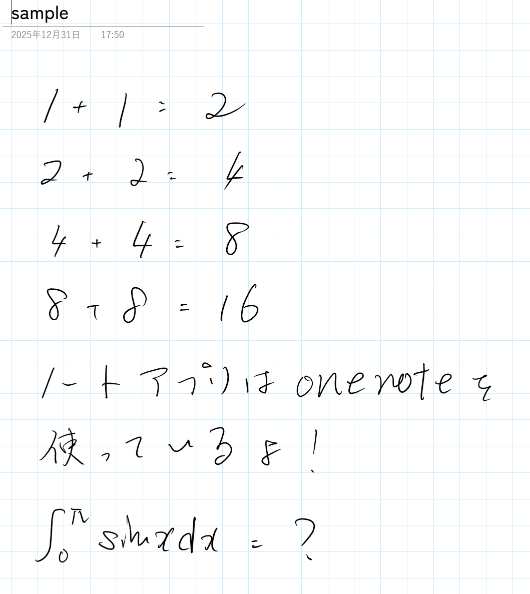 sample
2025年12月31日 17:50
1 + 1 = 2
2 + 2 = 4
4 + 4 = 8
8 + 8 = 16
ノートアプリは onenote を
使っているよ!
∫₀^π sin x dx = ?